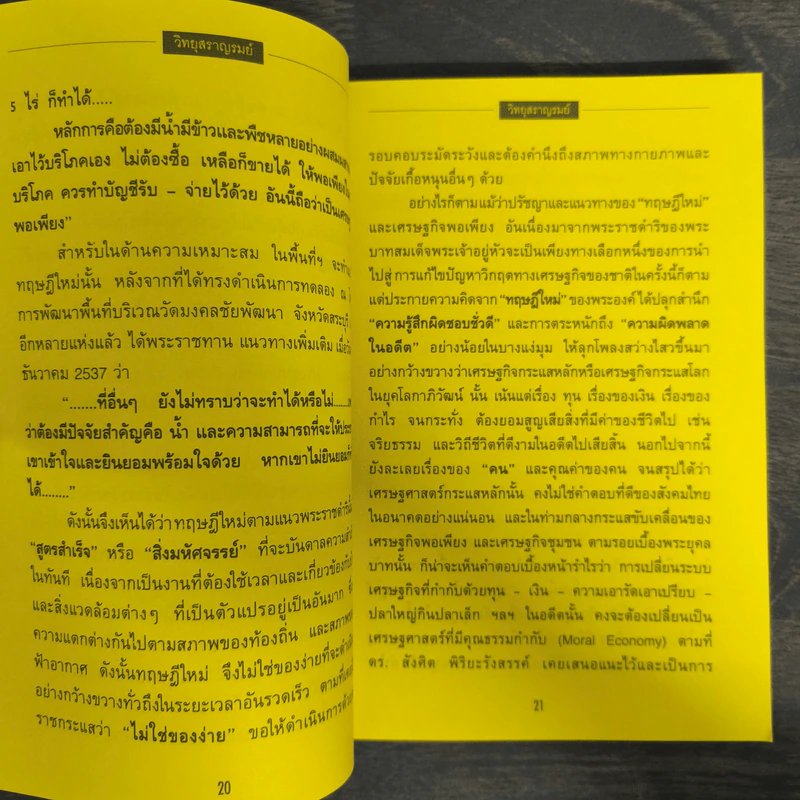 วิทยุสราญรมย์
5 ไร่ ก็ทำได้.....
หลักการคือต้องมีน้ำมีข้าวและพืชหลายอย่างผสมผสาน
เอาไว้บริโภคเอง ไม่ต้องซื้อ เหลือก็ขายได้ ให้พอเพียง
บริโภค ควรทำบัญชีรับ - จ่ายไว้ด้วย อันนี้ถือว่าเป็น
พอเพียง"
สำหรับในด้านความเหมาะสม ในพื้นที่ฯ
ทฤษฎีใหม่นั้น หลังจากที่ได้ทรงดำเนินการทดลอง ณ
การพัฒนาพื้นที่บริเวณวัดมงคลชัยพัฒนา จังหวัด
อีกหลายแห่งแล้ว ได้พระราชทาน แนวทางเพิ่มเติม
ธันวาคม 2537 ว่า
".......ที่อื่นๆ ยังไม่ทราบว่าจะทำได้หรือไม่.....
ว่าต้องมีปัจจัยสำคัญคือ น้ำ และความสามารถที่จะให้
เขาเข้าใจและยินยอมพร้อมใจด้วย หากเขาไม่ยินยอม
ได้........"
ดังนั้นจึงเห็นได้ว่าทฤษฎีใหม่ตามแนวพระราชดำริ
"สูตรสำเร็จ" หรือ "สิ่งมหัศจรรย์" ที่จะบันดาลความ
ในทันที เนื่องจากเป็นงานที่ต้องใช้เวลาและเกี่ยวข้อง
และสิ่งแวดล้อมต่างๆ ที่เป็นตัวแปรอยู่เป็นอันมาก
ความแตกต่างกันไปตามสภาพของท้องถิ่น และ
ฟ้าอากาศ ดังนั้นทฤษฎีใหม่ จึงไม่ใช่ของง่ายที่จะ
อย่างกว้างขวางทั่วถึงในระยะเวลาอันรวดเร็ว ตามที่
ราชกระแสว่า "ไม่ใช่ของง่าย" ขอให้ดำเนินการ
20
วิทยุสราญรมย์
รอบคอบระมัดระวังและต้องคำนึงถึงสภาพทางกายภาพและ
ปัจจัยเกื้อหนุนอื่นๆ ด้วย
อย่างไรก็ตามแม้ว่าปรัชญาและแนวทางของ "ทฤษฎีใหม่"
และเศรษฐกิจพอเพียง อันเนื่องมาจากพระราชดำริของพระ
บาทสมเด็จพระเจ้าอยู่หัวจะเป็นเพียงทางเลือกหนึ่งของการนำ
ไปสู่การแก้ไขปัญหาวิกฤตทางเศรษฐกิจของชาติในครั้งนี้ก็ตาม
แต่ประกายความคิดจาก "ทฤษฎีใหม่" ของพระองค์ได้ปลุกสำนึก
"ความรู้สึกผิดชอบชั่วดี" และการตระหนักถึง "ความผิดพลาด
ในอดีต" อย่างน้อยในบางแง่มุม ให้ลุกโพลงสว่างไสวขึ้นมา
อย่างกว้างขวางว่าเศรษฐกิจกระแสหลักหรือเศรษฐกิจกระแสโลก
ในยุคโลกาภิวัฒน์ นั้น เน้นแต่เรื่อง ทุน เรื่องของเงิน เรื่องของ
กำไร จนกระทั่ง ต้องยอมสูญเสียสิ่งที่มีค่าของชีวิตไป เช่น
จริยธรรม และวิถีชีวิตที่ดีงามในอดีตไปเสียสิ้น นอกไปจากนี้
ยังละเลยเรื่องของ "คน" และคุณค่าของคน จนสรุปได้ว่า
เศรษฐศาสตร์กระแสหลักนั้น คงไม่ใช่คำตอบที่ดีของสังคมไทย
ในอนาคตอย่างแน่นอน และในท่ามกลางกระแสขับเคลื่อนของ
เศรษฐกิจพอเพียง และเศรษฐกิจชุมชน ตามรอยเบื้องพระยุคล
บาทนั้น ก็น่าจะเห็นคำตอบเบื้องหน้ารำไรว่า การเปลี่ยนระบบ
เศรษฐกิจที่กำกับด้วยทุน - เงิน - ความเอารัดเอาเปรียบ -
ปลาใหญ่กินปลาเล็ก ฯลฯ ในอดีตนั้น คงจะต้องเปลี่ยนเป็น
เศรษฐศาสตร์ที่มีคุณธรรมกำกับ (Moral Economy) ตามที่
ดร. สังศิต พิริยะรังสรรค์ เคยเสนอแนะไว้และเป็นการ
21